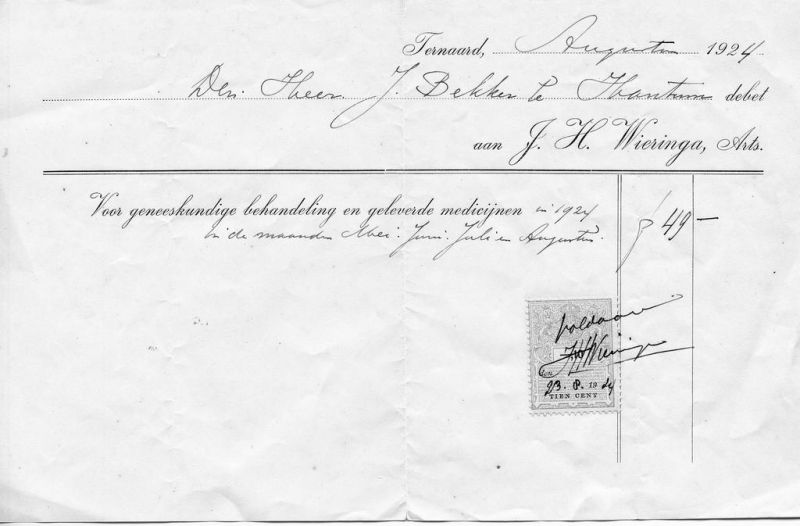 Ternaard, Augustus 1924
Den Heer J. Bekker te Hantum debet
aan J. H. Wieringa, Arts.
Voor geneeskundige behandeling en geleverde medicijnen in 1924 f 49 —
in de maanden Mei. Juni. Juli en Augustus.
voldaan
JHWieringa
23. 8. 1924
TIEN CENT